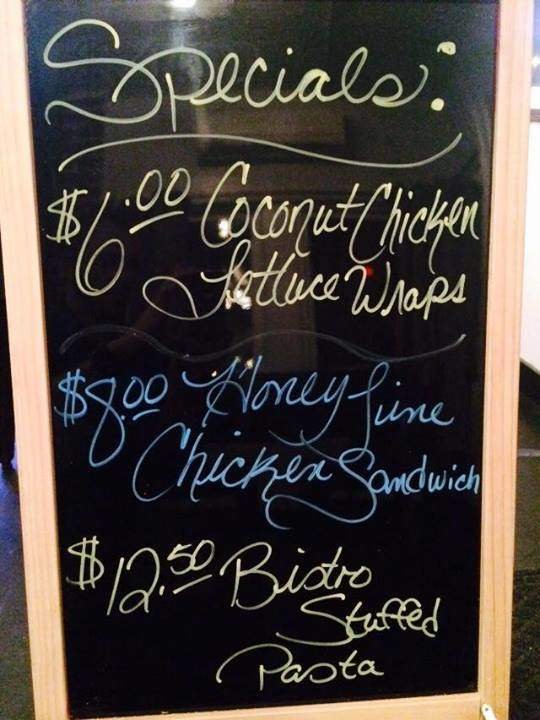 Specials:
$6.00 Coconut Chicken
Lettuce Wraps
$8.00 Honey Lime
Chicken Sandwich
$12.50 Bistro
Stuffed
Pasta